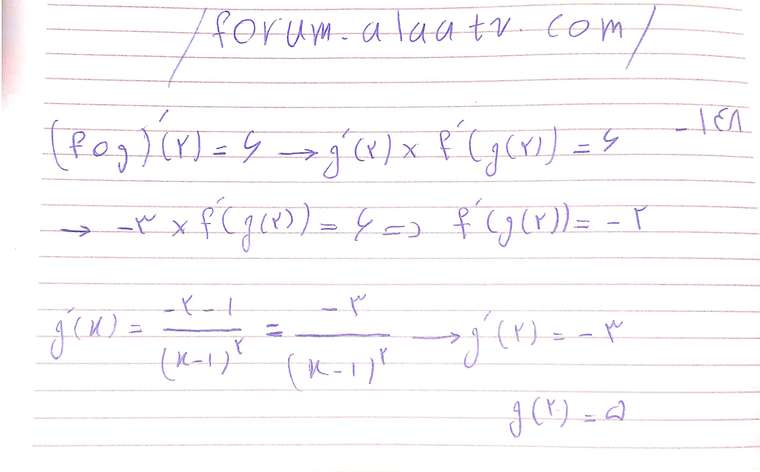 /forum.alaatv.com/
-۱۴۸
(fog)′(۲) = ۶ → g′(۲) × f′(g(۲)) = ۶
→ -۳ × f′(g(۲)) = ۶ => f′(g(۲)) = -۲
g′(x) = (-۲-۱)/(x-۱)^۲ = (-۳)/(x-۱)^۲ → g′(۲) = -۳
g(۲) = ۵